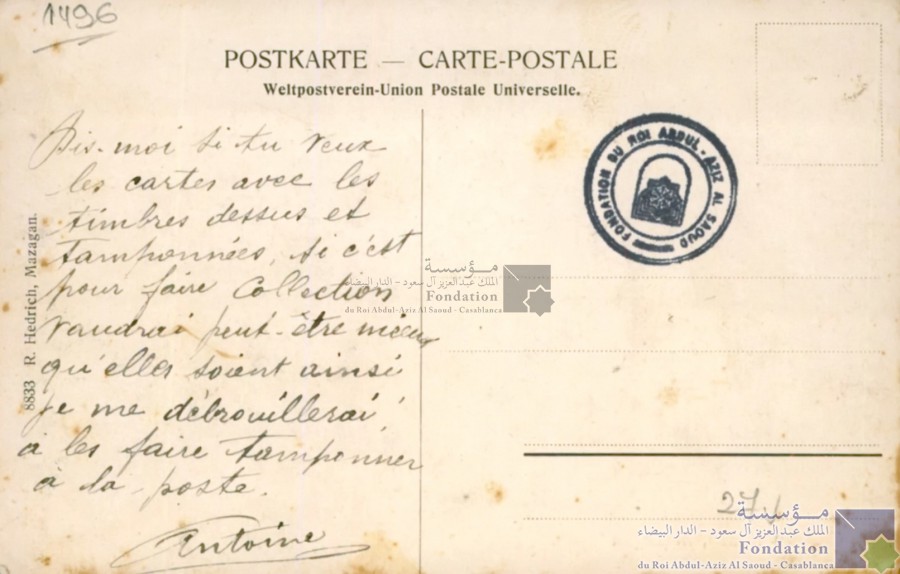 1496
POSTKARTE — CARTE-POSTALE
Weltpostverein-Union Postale Universelle.
Dis-moi si tu veux
les cartes avec les
timbres dessus et
tamponnées, si c'est
pour faire Collection
vaudrai peut-être mieux
qu'elles soient ainsi
je me débrouillerai
à les faire tamponner
à la poste.
Antoine
8833 R. Hedrich, Mazagan.
FONDATION DU ROI ABDUL-AZIZ AL SAOUD
مؤسسة
الملك عبد العزيز آل سعود - الدار البيضاء
Fondation
du Roi Abdul-Aziz Al Saoud - Casablanca
مؤسسة
الملك عبد العزيز آل سعود - الدار البيضاء
Fondation
du Roi Abdul-Aziz Al Saoud - Casablanca